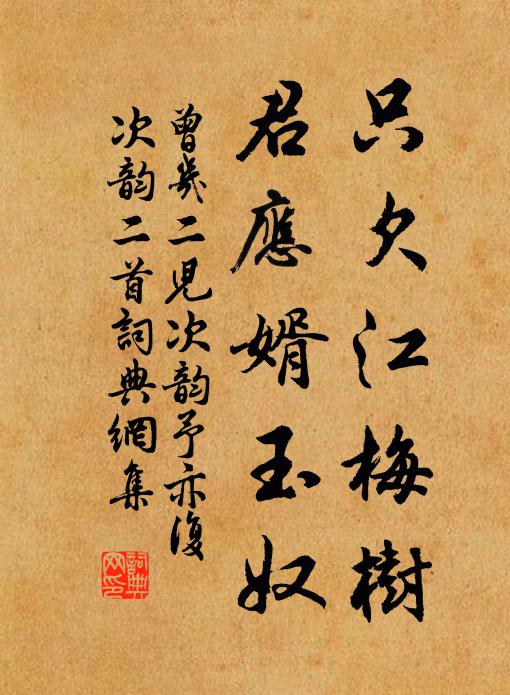 只欠江梅樹
君應婿玉奴
曾幾二児次韵予亦復
次韵二首詞典網集
詞典
网印